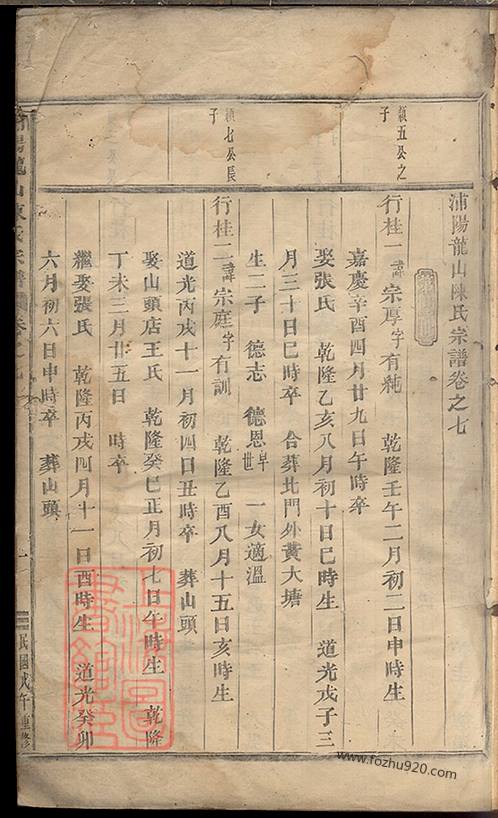 浦陽龍山陳氏宗譜卷之七
穎五公之
子
行桂一諱宗厚字有純 乾隆壬午二月初二日申時生
嘉慶辛酉四月廿九日午時卒
娶張氏 乾隆乙亥八月初十日巳時生 道光戊子三
月三十日巳時卒 合葬北門外黃大塘
生二子 德志 德恩早世 一女適溫
穎七公長
子
行桂二諱宗庭字有訓 乾隆乙酉八月十五日亥時生
道光丙戌十一月初四日丑時卒 葬山頭
娶山頭店王氏 乾隆癸巳正月初七日午時生 乾隆
丁未三月廿五日 時卒
繼娶張氏 乾隆丙戌四月十一日酉時生 道光癸卯
六月初六日申時卒 葬山頭
龍山陳氏宗譜 卷之七
一
民國戊午重修
www.fozhu920.com